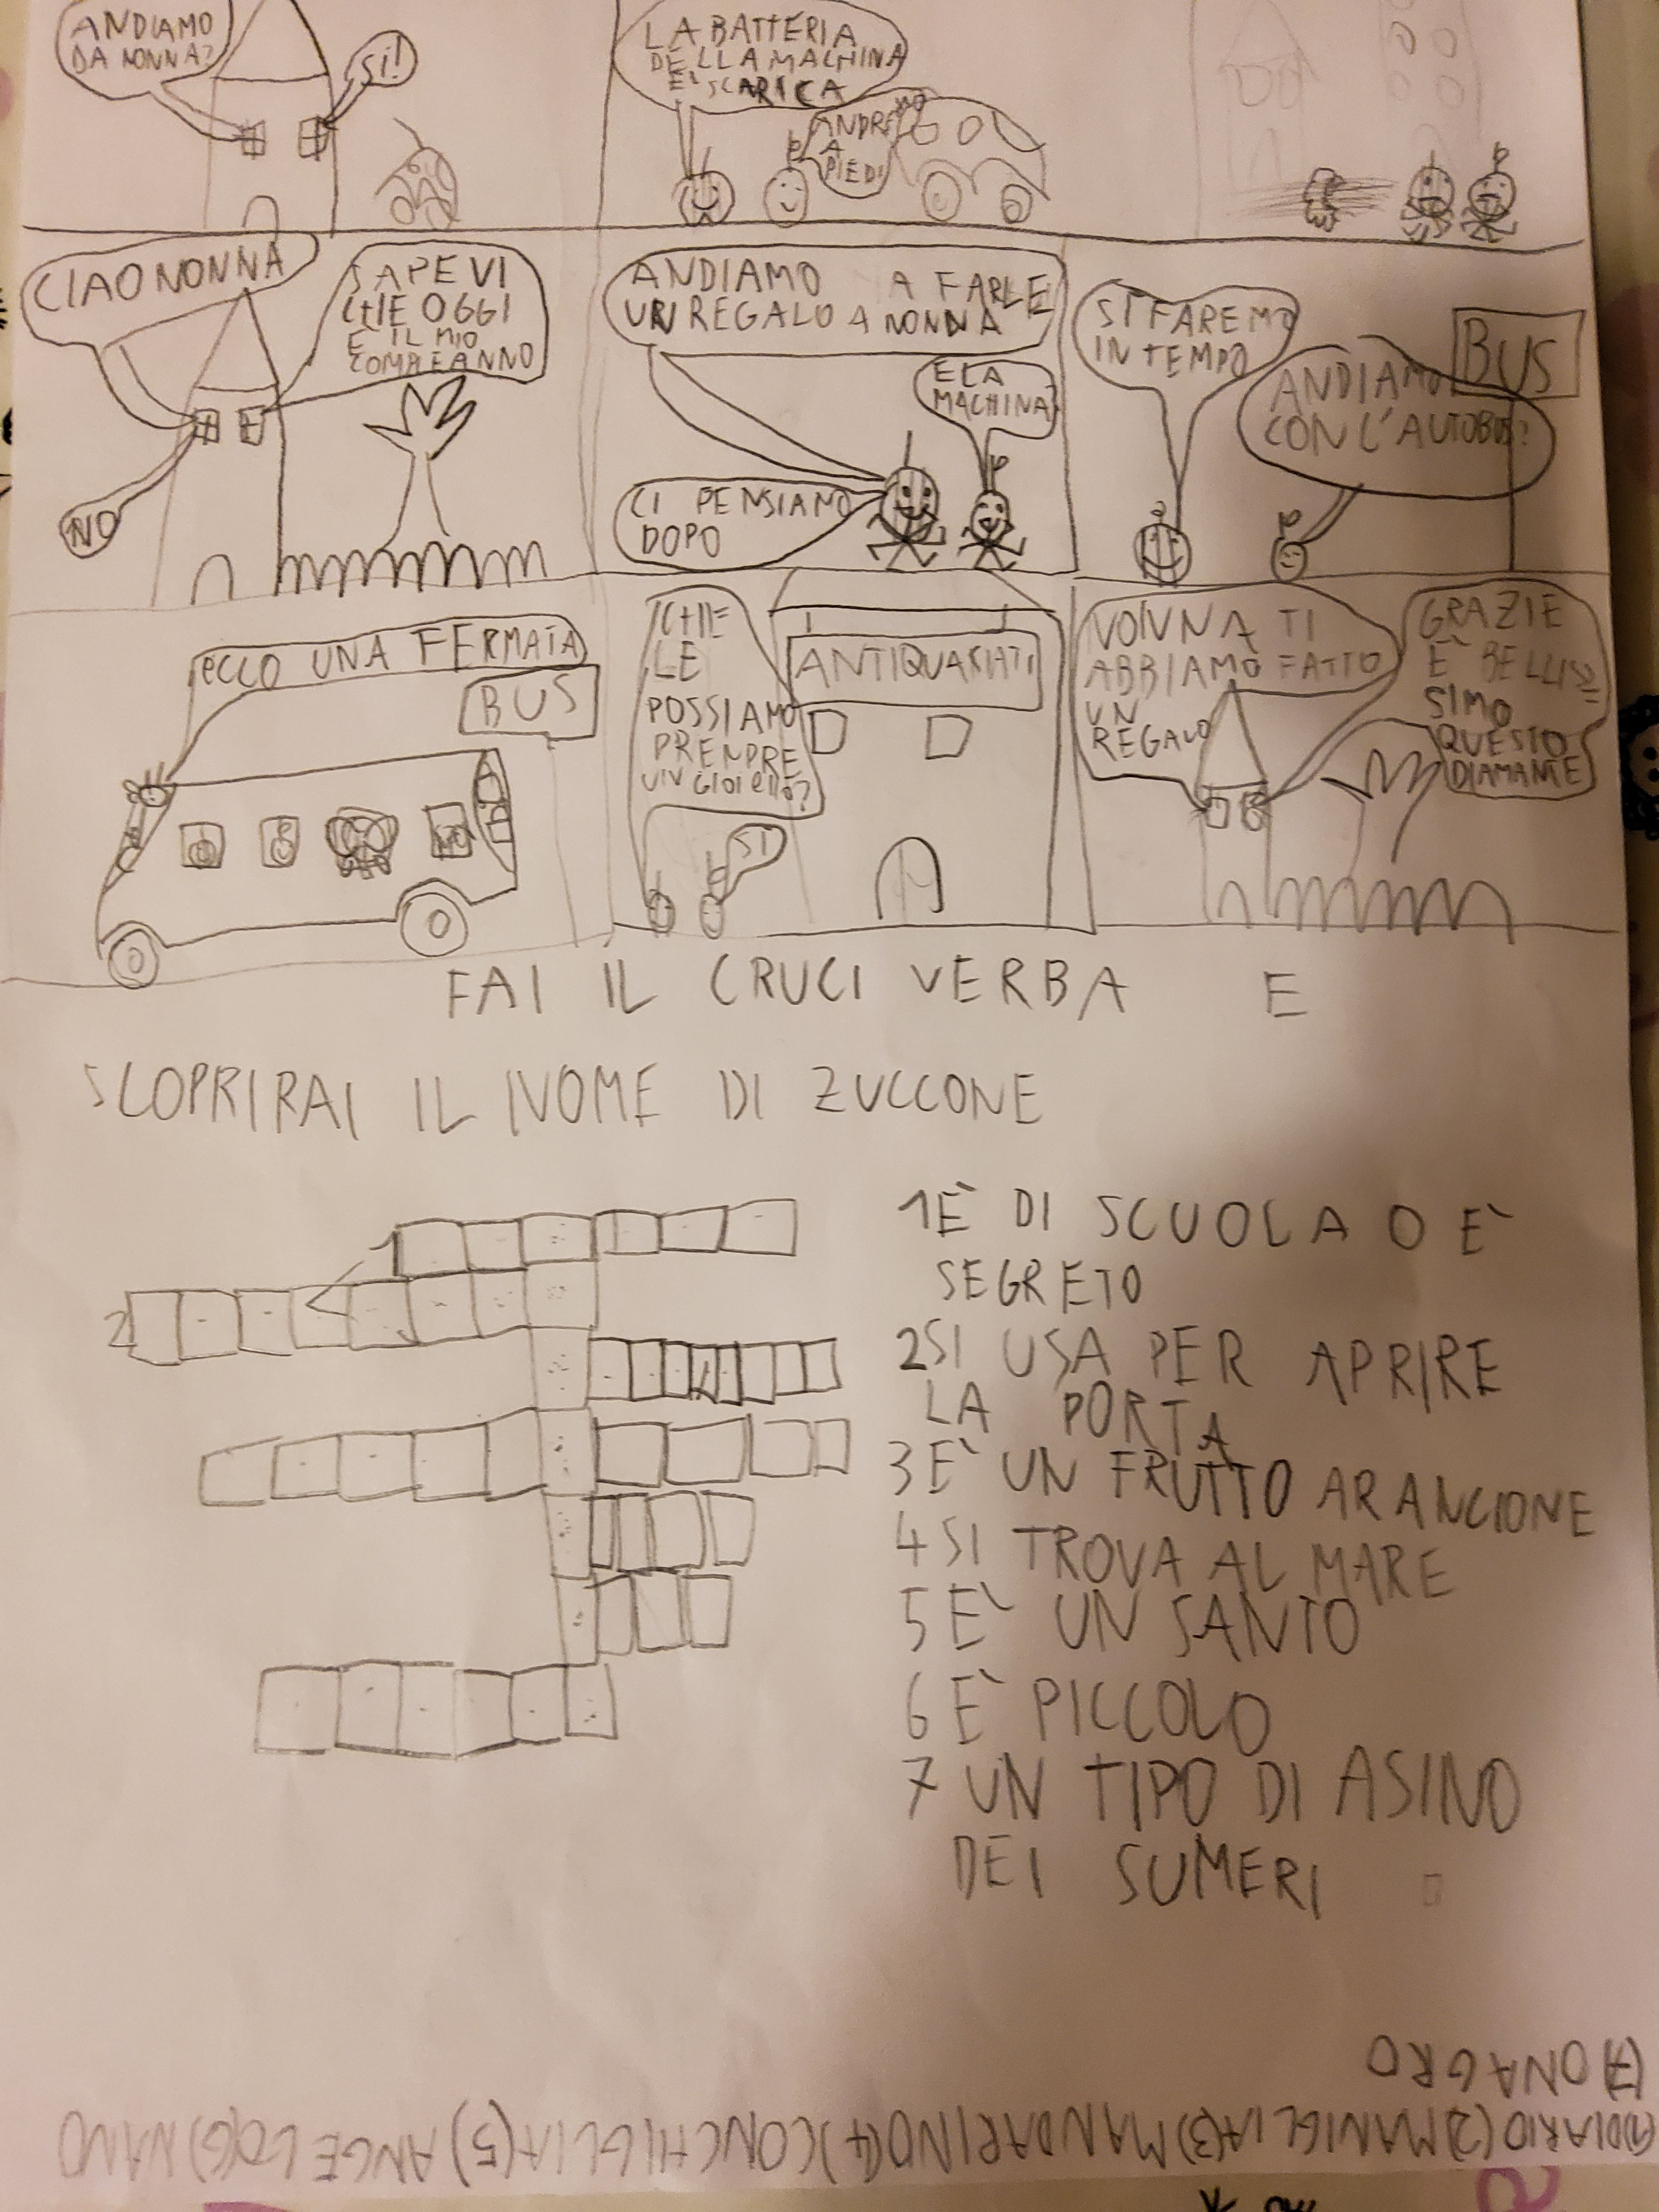 ANDIAMO
DA NONNA?
SI!
LA BATTERIA
DELLA MACHINA
E' SCARICA
ANDREMO
A
PIEDI
CIAO NONNA
SAPEVI
CHE OGGI
È IL MIO
COMPLEANNO
NO
ANDIAMO A FARLE
UN REGALO A NONNA
E LA
MACHINA?
CI PENSIAMO
DOPO
SI FAREMO
IN TEMPO
ANDIAMO
CON L'AUTOBUS?
BUS
ECCO UNA FERMATA
BUS
CHE
LE
POSSIAMO
PRENDRE
UN GIOIELLO?
SI
ANTIQUARIATI
NONNA TI
ABBIAMO FATTO
UN
REGALO
GRAZIE
È BELLIS=
SIMO
QUESTO
DIAMANTE
FAI IL CRUCI VERBA E
SCOPRIRAI IL NOME DI ZUCCONE
1 È DI SCUOLA O È
SEGRETO
2 SI USA PER APRIRE
LA PORTA
3 È UN FRUTTO ARANCIONE
4 SI TROVA AL MARE
5 È UN SANTO
6 È PICCOLO
7 UN TIPO DI ASINO
DEI SUMERI
1
2
(1)DIARIO(2)MANIGLIA(3)MANDARINO(4)CONCHIGLIA(5)ANGELO(6)NANO
(7)ONAGRO